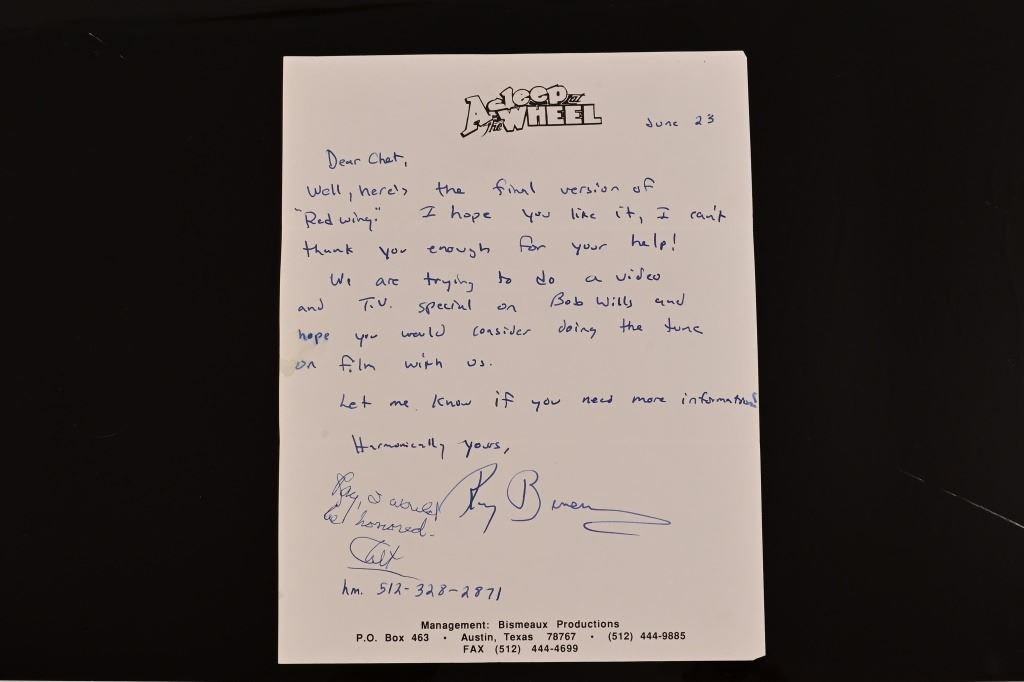 Asleep at
The WHEEL
June 23
Dear Chet,
Well, here's the final version of
"Redwing." I hope you like it, I can't
thank you enough for your help!
We are trying to do a video
and T.V. special on Bob Wills and
hope you would consider doing the tune
on film with us.
Let me know if you need more information
Harmonically yours,
Ray Benson
Ray, I would
be honored.
Chet
hm. 512-328-2871
Management: Bismeaux Productions
P.O. Box 463 • Austin, Texas 78767 • (512) 444-9885
FAX (512) 444-4699